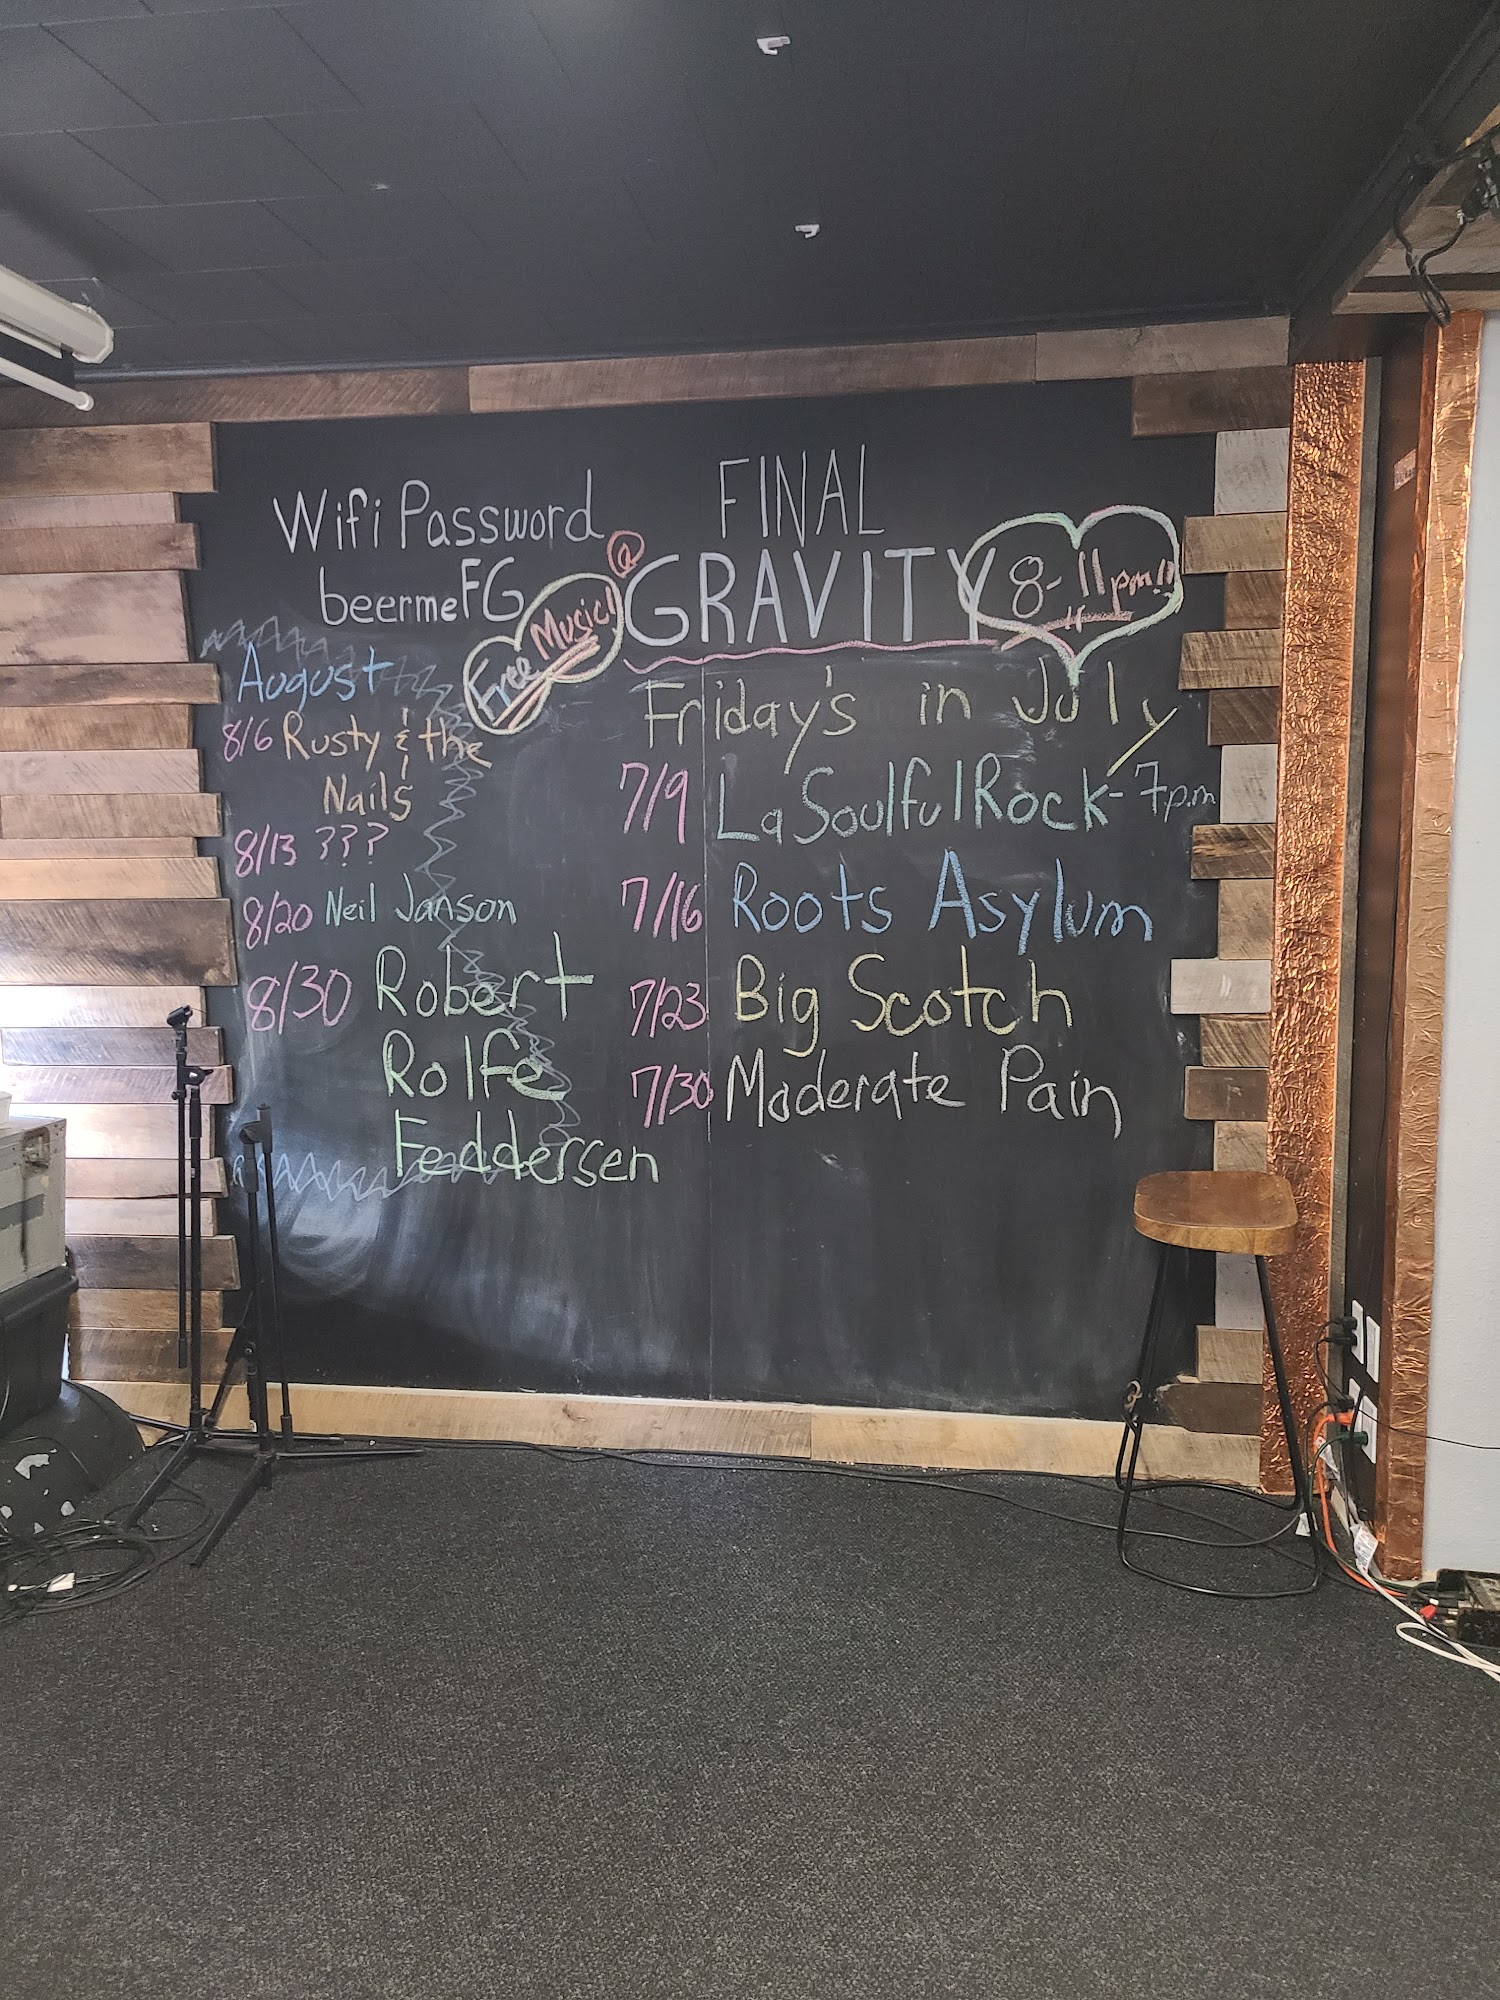 Wifi Password
beermeFG
Free Music!
@
FINAL
GRAVITY
8-11pm!!
August
8/6 Rusty & the
Nails
8/13 ???
8/20 Neil Janson
8/30 Robert
Rolfe
Feddersen
Friday's in July
7/9 La Soulful Rock - 7p.m
7/16 Roots Asylum
7/23 Big Scotch
7/30 Moderate Pain